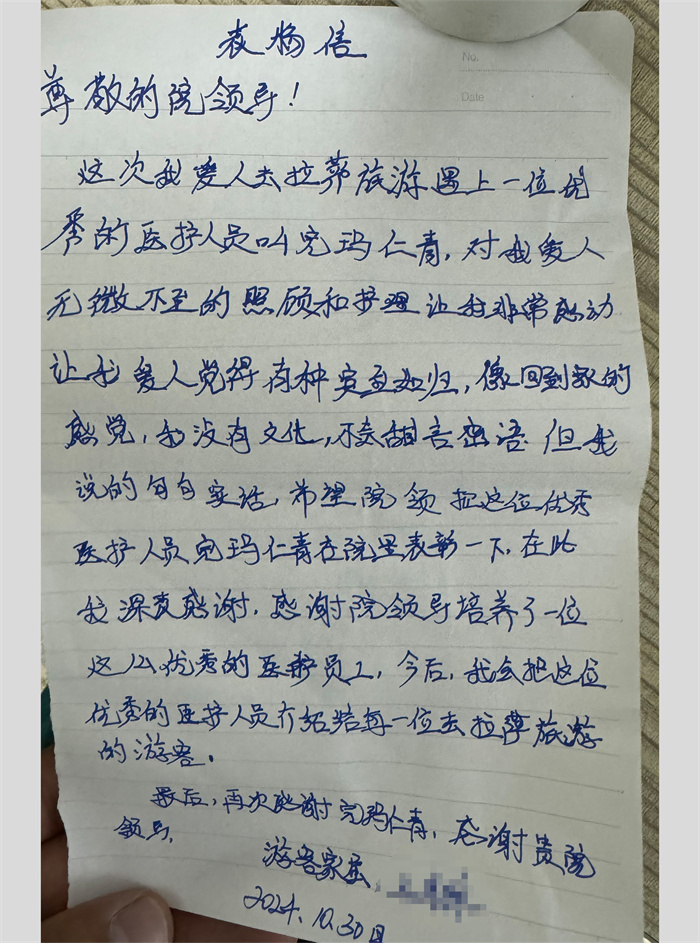 表扬信
No.
Date
尊敬的院领导!
这次我爱人去拉萨旅游遇上一位优
秀的医护人员叫完玛仁青,对我爱人
无微不至的照顾和护理让我非常感动
让我爱人觉得有种宾至如归,像回到家的
感觉,我没有文化,不卖甜言密语 但我
说的句句实话,希望院领 把这位优秀
医护人员完玛仁青在院里表彰一下,在此
我深表感谢,感谢院领导培养了一位
这么优秀的医护员工,今后,我会把这位
优秀的医护人员介绍给每一位去拉萨旅游
的游客.
最后,再次感谢完玛仁青,感谢贵院
领导.
游客家属,
2024.10.30日